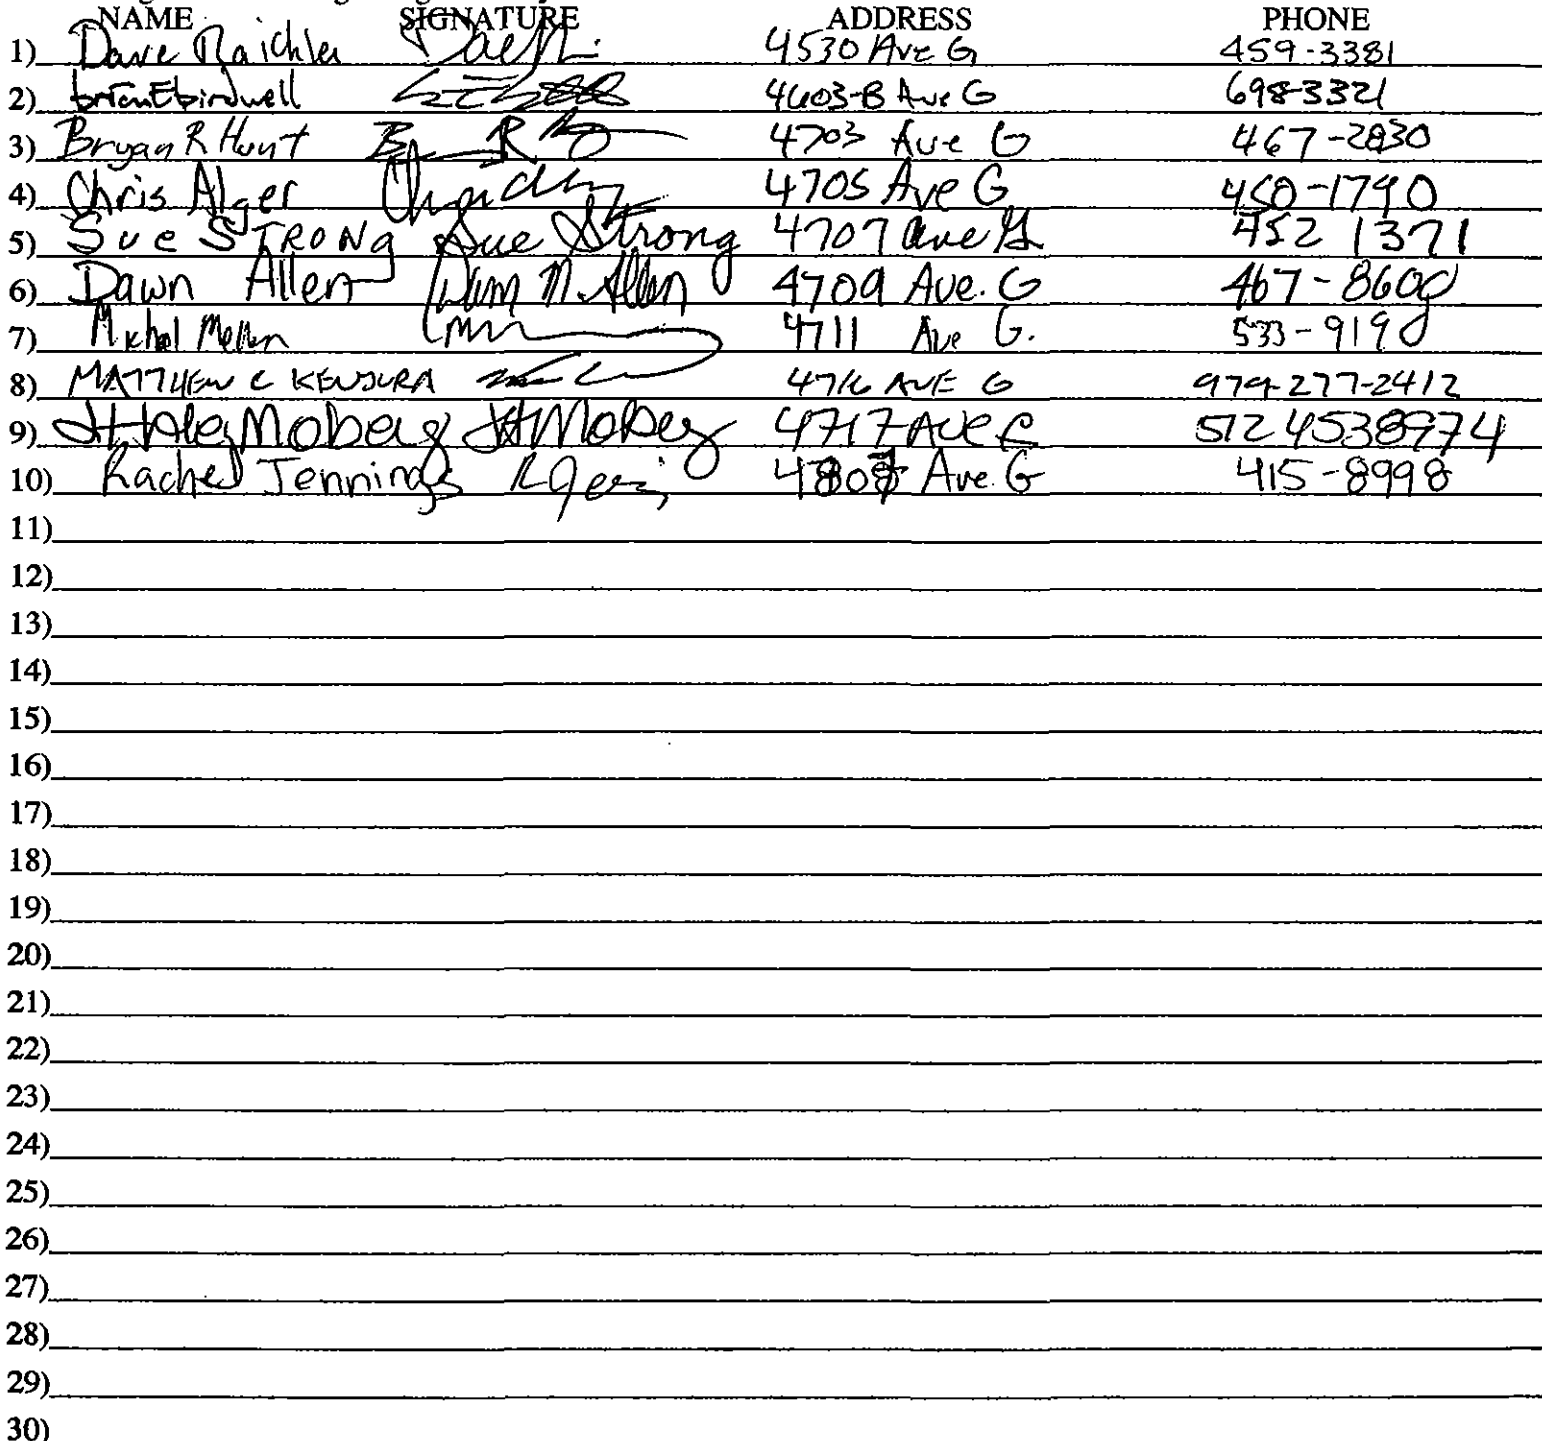 NAME SIGNATURE ADDRESS PHONE
1) Dave Raichle 4530 Ave G 459-3381
2) brianEbirdwell 4603-B Ave G 698-3321
3) Bryan R Hunt B R 4703 Ave G 467-2830
4) Chris Alger 4705 Ave G 450-1790
5) Sue STRONg Sue Strong 4707 Ave G 452 1371
6) Dawn Allen Dawn M. Allen 4709 Ave. G 467-8600
7) Michel Mellen 4711 Ave G. 533-9190
8) MATTHEW C KENJURA 4716 AVE G 979-277-2412
9) Moberg Moberg 4717 Ave 512 4538974
10) Rachel Jennings Ave. G 415-8998
11)
12)
13)
14)
15)
16)
17)
18)
19)
20)
21)
22)
23)
24)
25)
26)
27)
28)
29)
30)